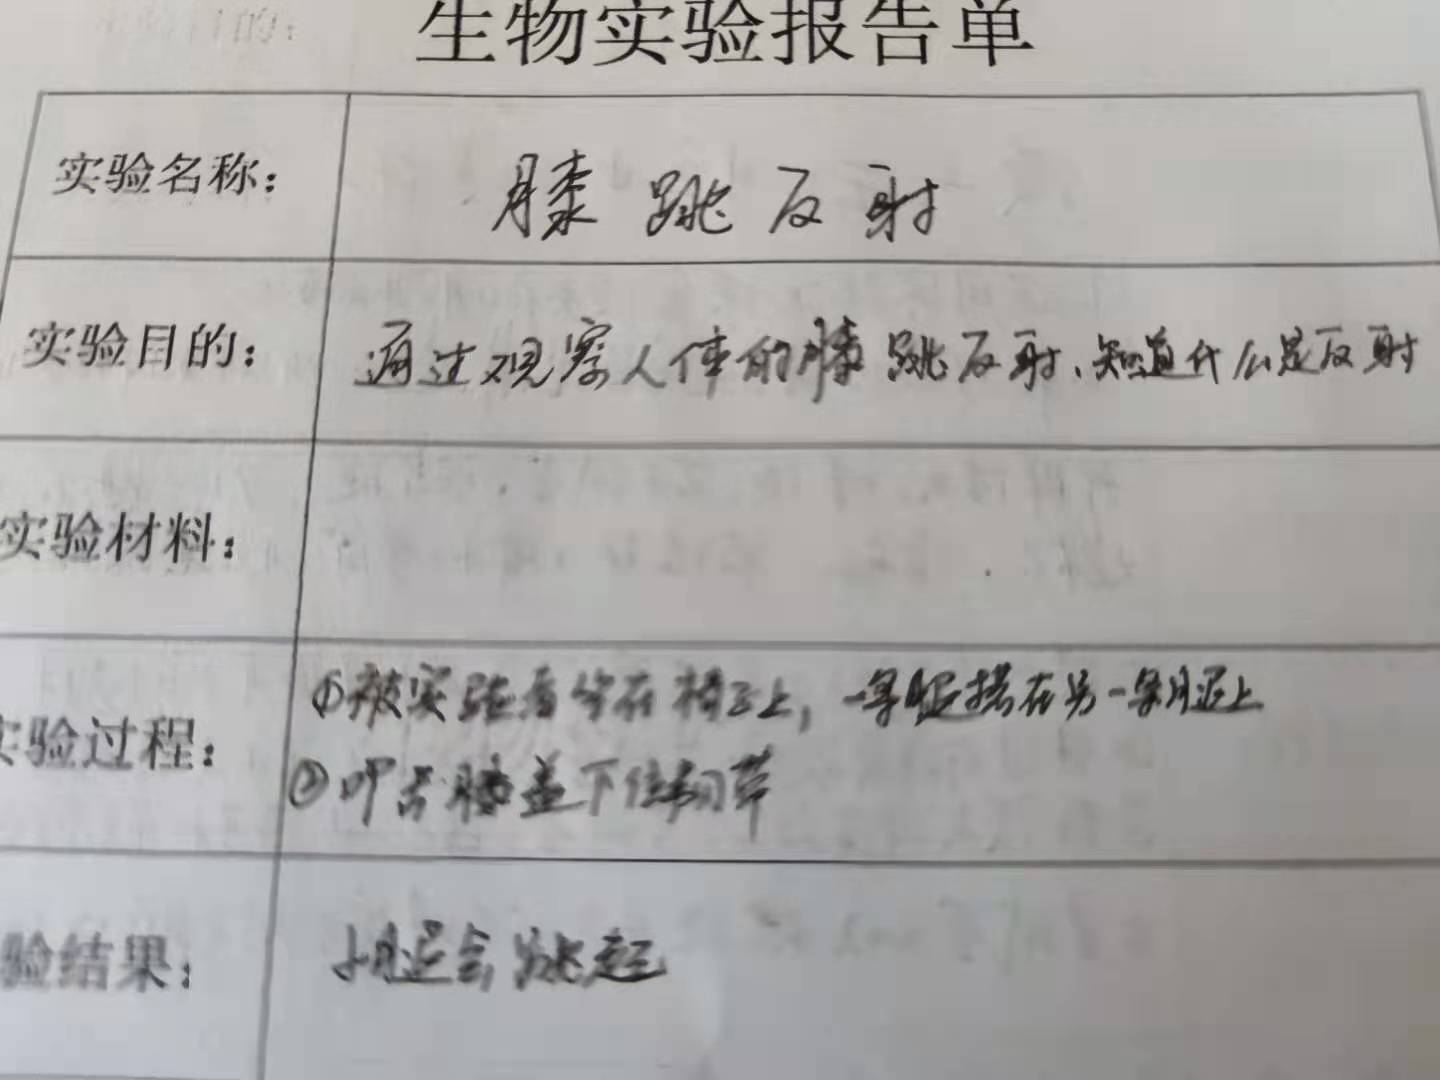 生物实验报告单
实验名称：
膝跳反射
实验目的：
通过观察人体的膝跳反射、知道什么是反射
实验材料：
实验过程：
①被实验者坐在椅子上，一条腿搭在另一条腿上
②叩击膝盖下位韧带
验结果：
小腿会跳起